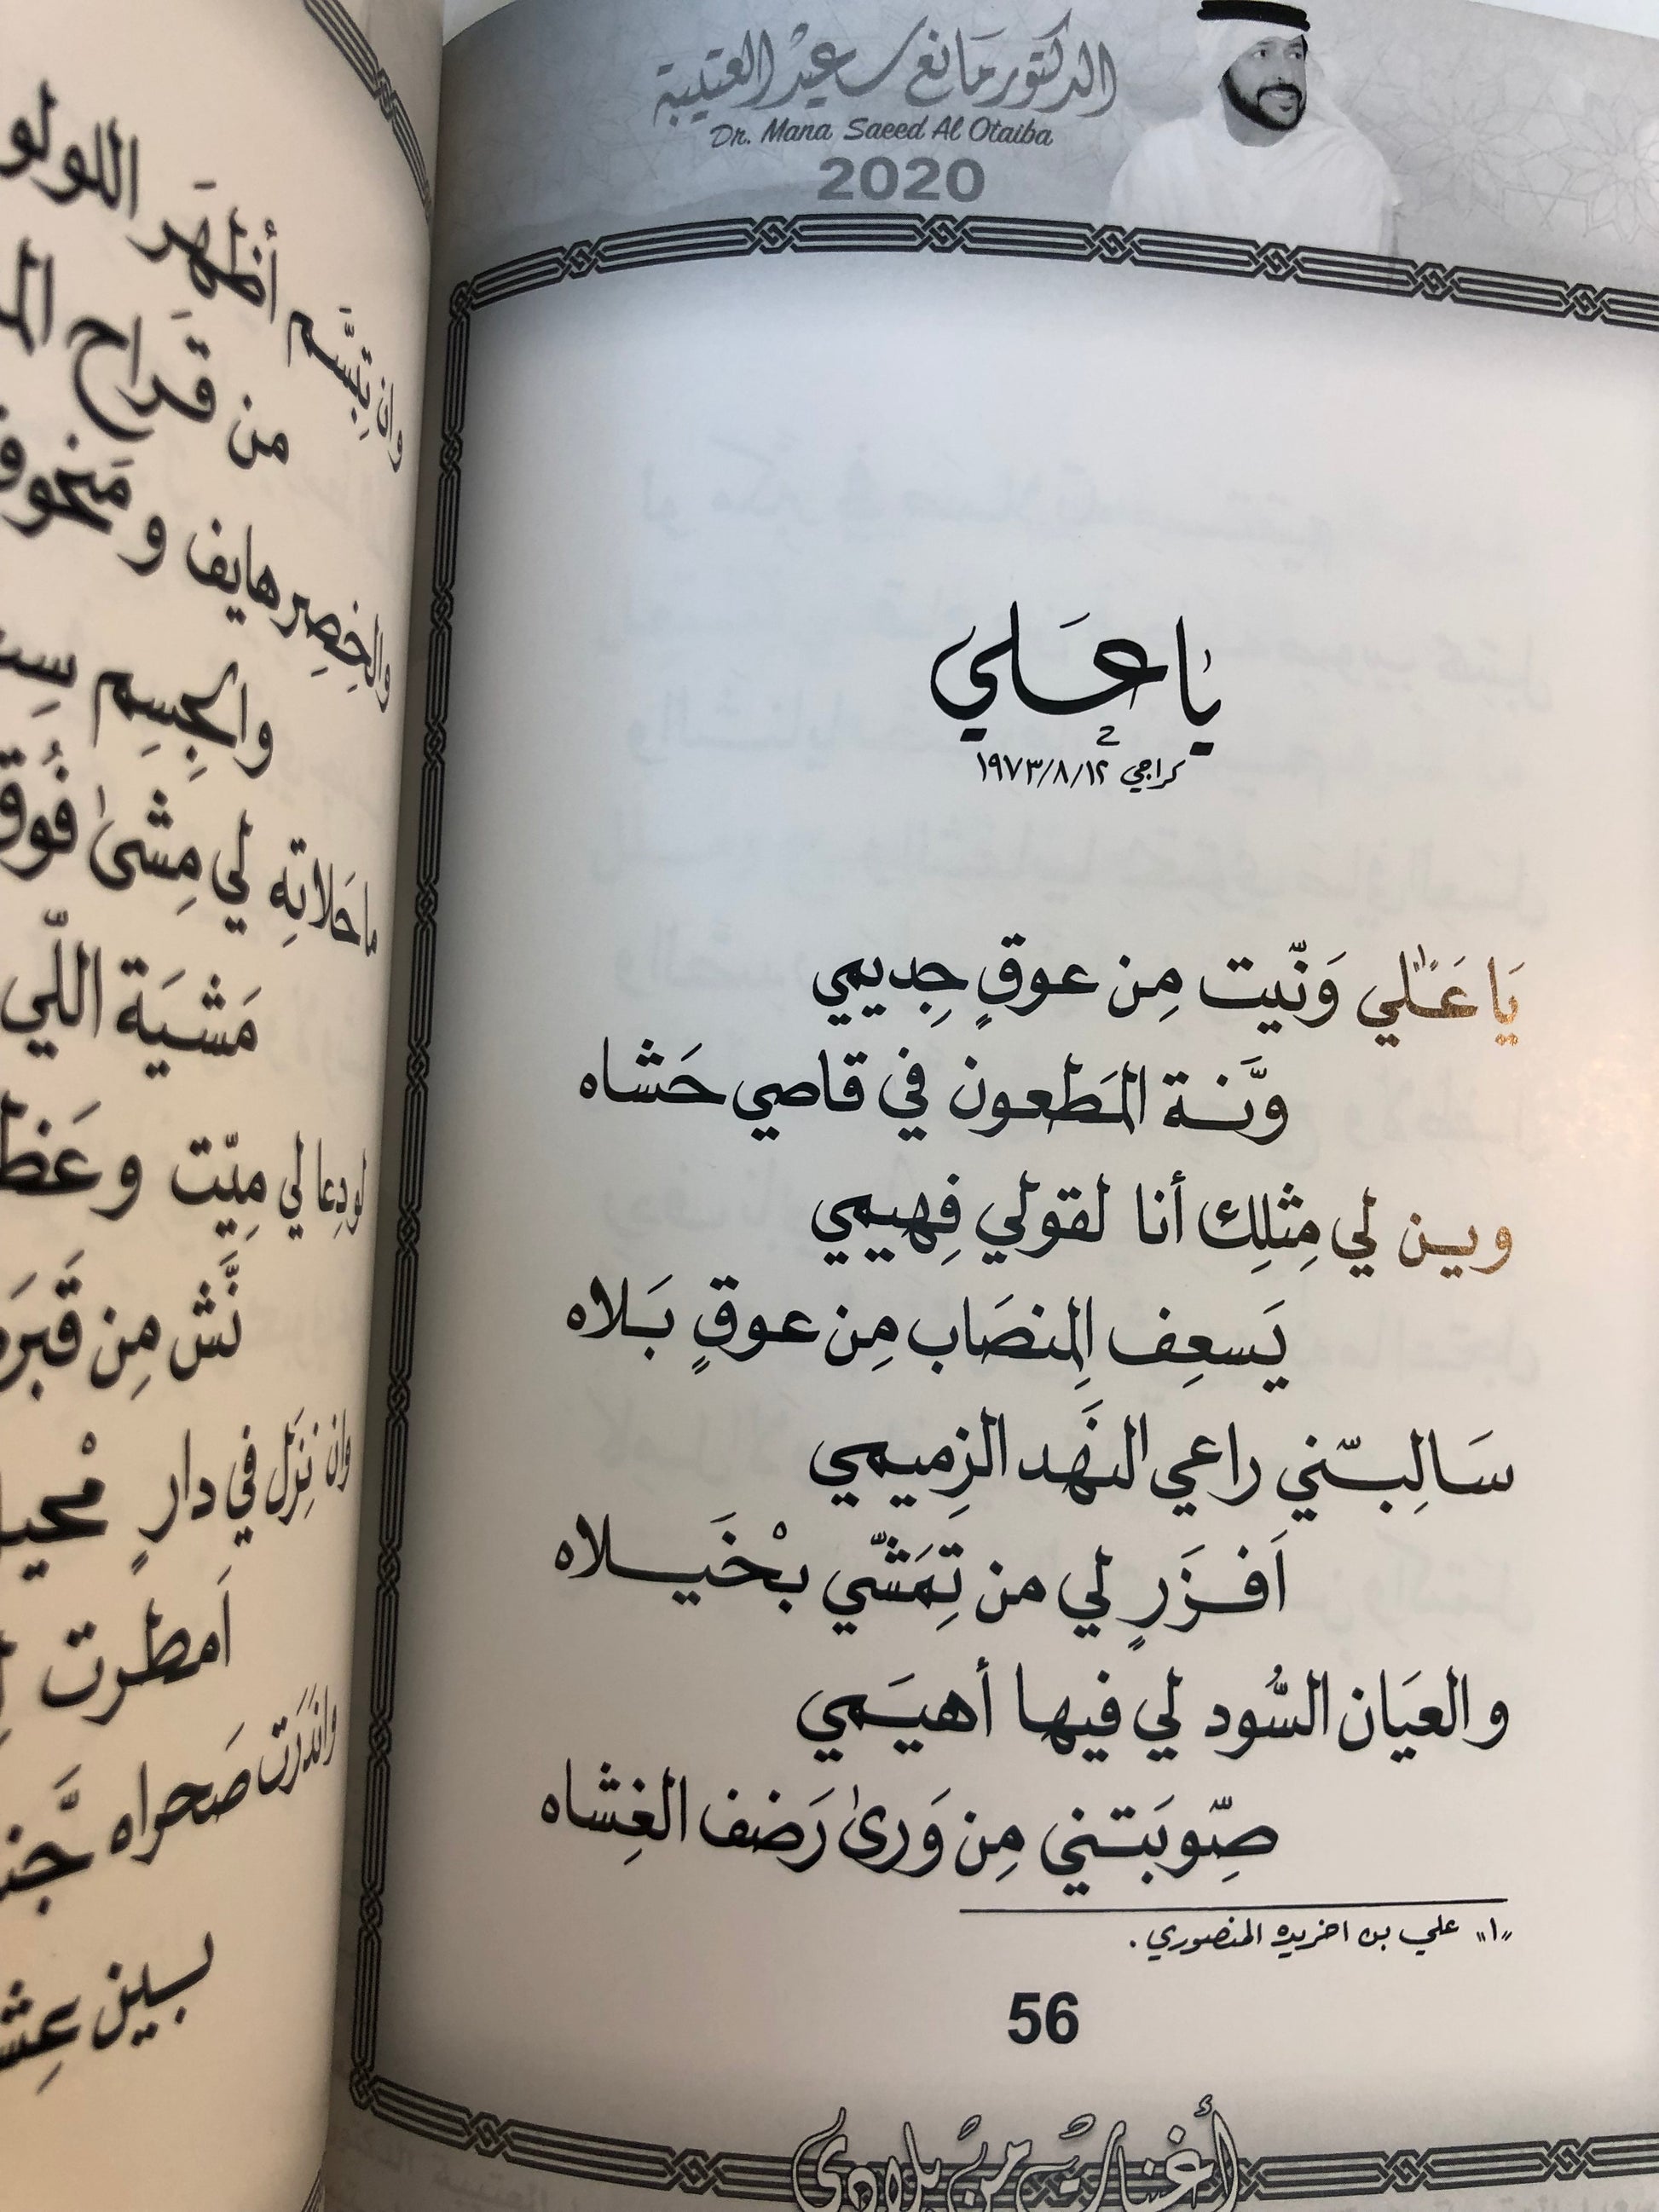 الدكتور مانع سعيد العتيبة
Dr. Mana Saeed Al Otaiba
2020
يا علي
كراجي ١٩٧٣/٨/١٢
يَا عَلي وَنّيت مِن عوقٍ جِديمي
ونَّـة المَطعون في قاصي حَشاه
وين لي مِثلِك أنا لقولي فِهيمي
يَسعِف اِلمنصَاب مِن عوقٍ بَلاه
سَالِبتّني راعي النَهد الزِميمي
اَفـزَرٍ لي من تِمَشّي بْخَيـلاه
والعيَان السُّود لي فيها أهيَمي
صِّوبَتني مِن وَرىٰ رَضف الغِشاه
"١" علي بن اخريده المنصوري .
56
أغنيات من بلادي
وان تِبسَّم أظهَر اللولو
من قَراح
والخِصِر هايف و
والجِسِم
ماحَلاتِه لي مِشىٰ فُوق
مَشيَة اللّي
لو دِعا لي مِيّت وعَظ
نَّش مِن قَبرَه
وان نِزَل في دارٍ
اَمطرت
صَحراه